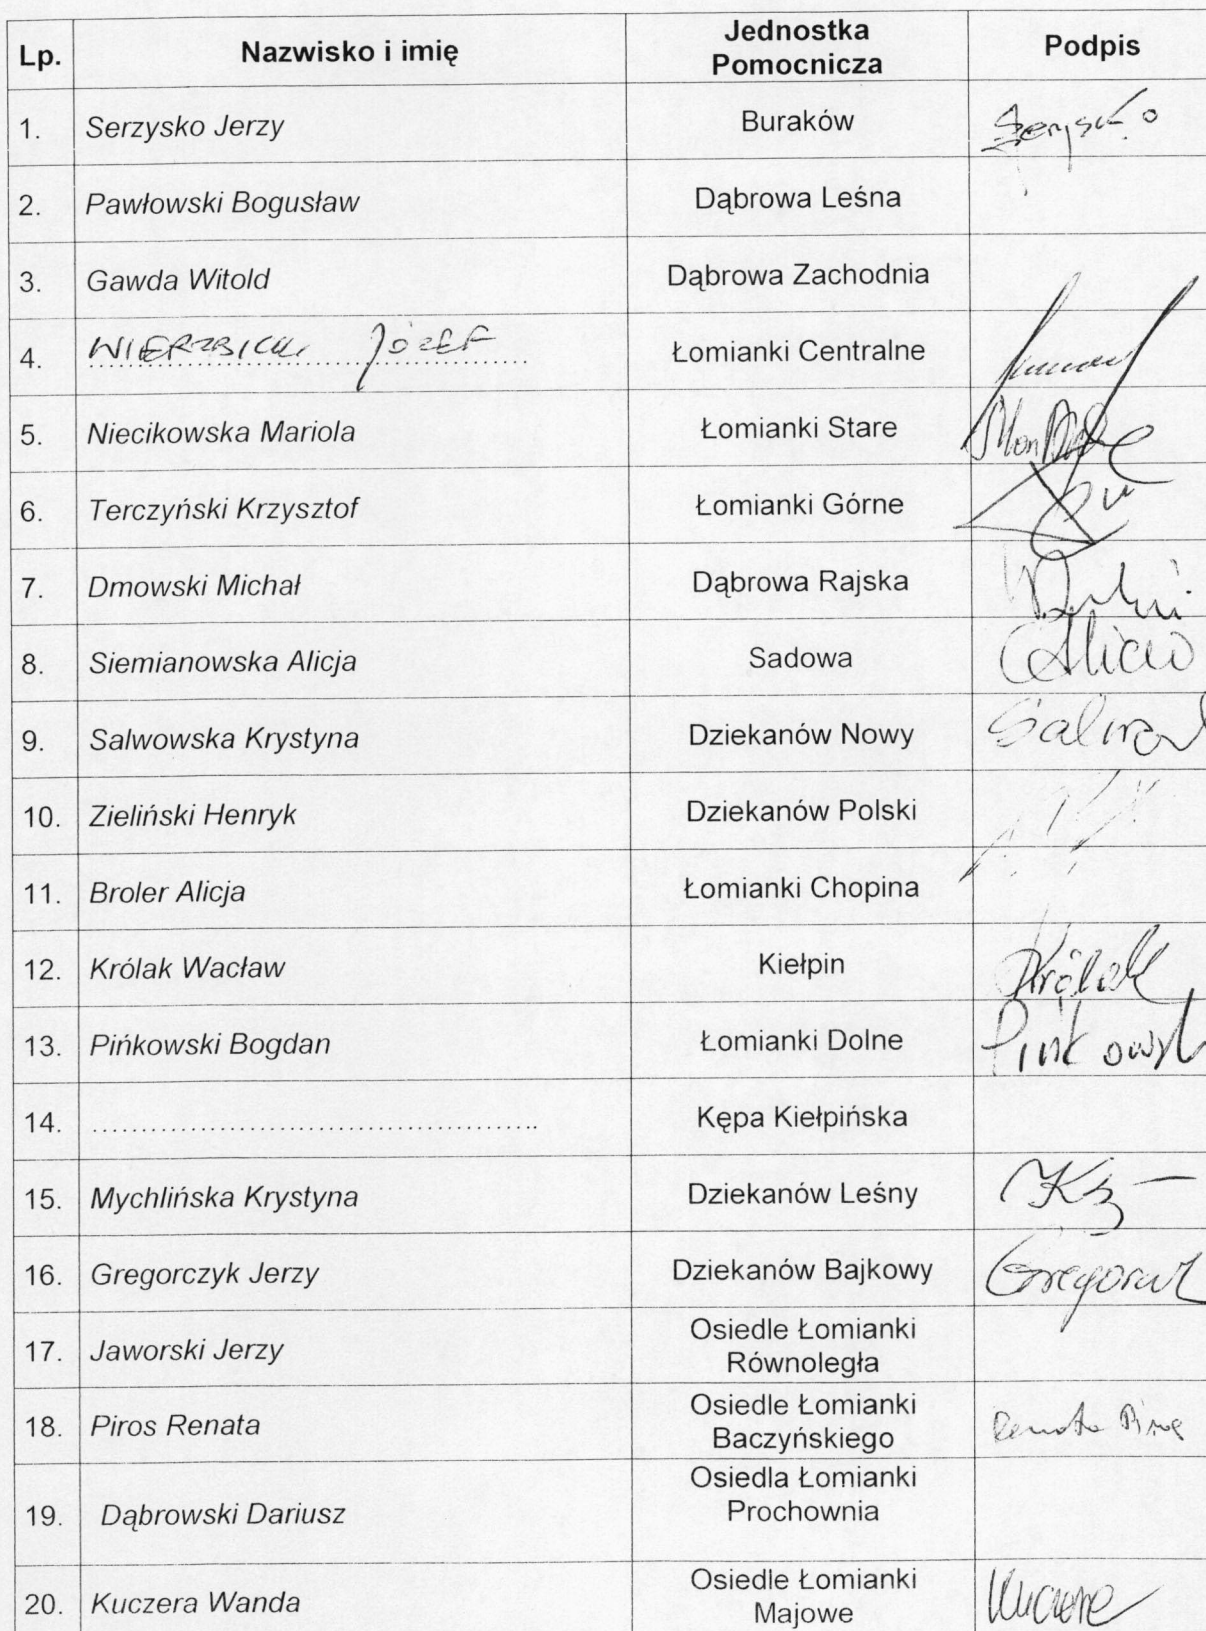 Lp. Nazwisko i imię Jednostka Pomocnicza Podpis
1. Serzysko Jerzy Buraków Serzysko
2. Pawłowski Bogusław Dąbrowa Leśna
3. Gawda Witold Dąbrowa Zachodnia
4. WIERZBICKI JÓZEF Łomianki Centralne
5. Niecikowska Mariola Łomianki Stare
6. Terczyński Krzysztof Łomianki Górne
7. Dmowski Michał Dąbrowa Rajska
8. Siemianowska Alicja Sadowa
9. Salwowska Krystyna Dziekanów Nowy
10. Zieliński Henryk Dziekanów Polski
11. Broler Alicja Łomianki Chopina
12. Królak Wacław Kiełpin Królak
13. Pińkowski Bogdan Łomianki Dolne
14. ................................................ Kępa Kiełpińska
15. Mychlińska Krystyna Dziekanów Leśny
16. Gregorczyk Jerzy Dziekanów Bajkowy
17. Jaworski Jerzy Osiedle Łomianki Równoległa
18. Piros Renata Osiedle Łomianki Baczyńskiego Renata Piros
19. Dąbrowski Dariusz Osiedla Łomianki Prochownia
20. Kuczera Wanda Osiedle Łomianki Majowe